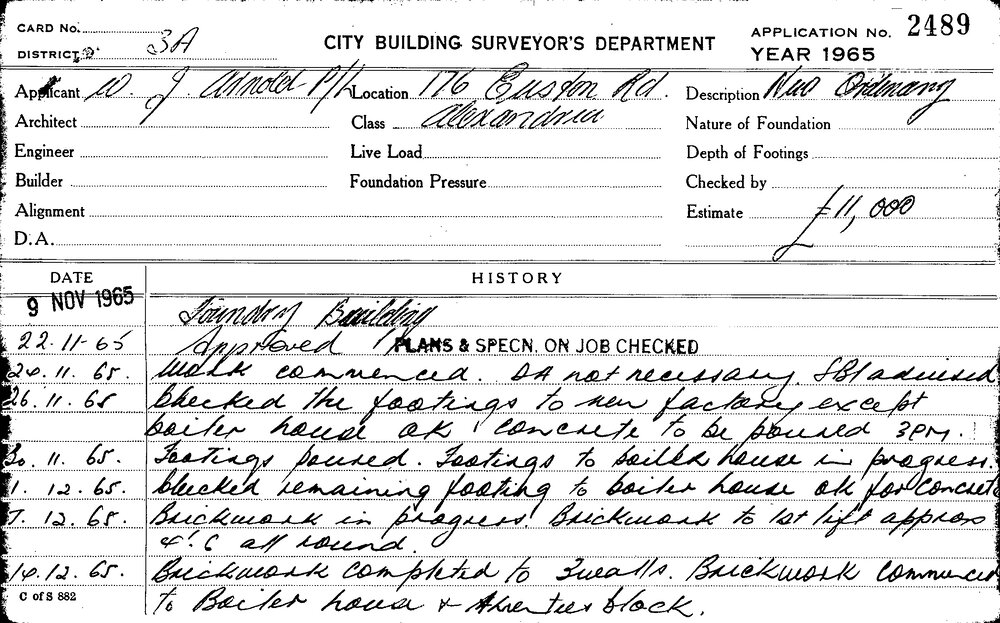 CARD No. CITY BUILDING SURVEYOR'S DEPARTMENT APPLICATION No. 2489
DISTRICT 3A YEAR 1965
Applicant W. J. Arnold P/L Location 176 Euston Rd. Description New Ordinary
Architect Class Alexandria Nature of Foundation
Engineer Live Load Depth of Footings
Builder Foundation Pressure Checked by
Alignment Estimate £11,000
D.A.
DATE HISTORY
9 NOV 1965 Foundry Building
22.11-65 Approved PLANS & SPECN. ON JOB CHECKED
24.11.65. Work commenced. DA not necessary. SBI advised
26.11.65 Checked the footings to new factory except
boiler house ok concrete to be poured 3PM.
30.11.65. Footings poured. Footings to boiler house in progress.
1.12.65. Checked remaining footing to boiler house ok for concrete
7.12.65. Brickwork in progress. Brickwork to 1st lift approx
4'.6 all round.
14.12.65. Brickwork completed to 3 walls. Brickwork commenced
C of S 882
to Boiler house & block.